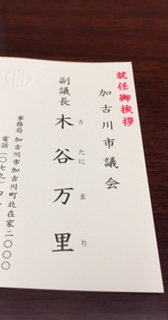 就任御挨拶
加古川市議会
副議長 木谷万里
きたに まり
事務局 加古川市加古川町北在家二〇〇〇
電話 (〇七九)四